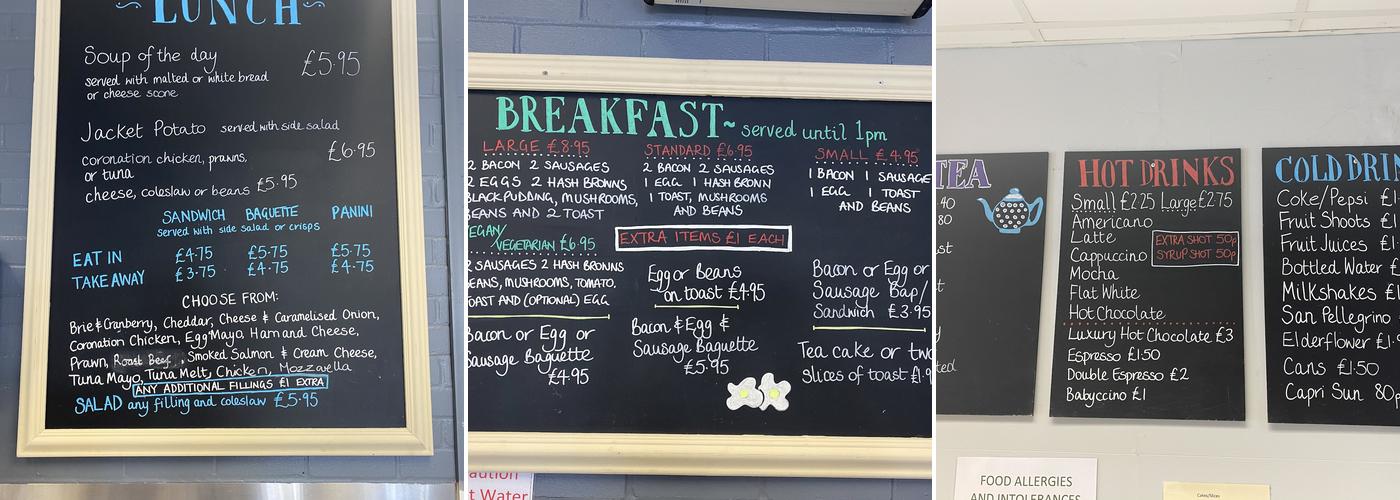 LUNCH
Soup of the day £5.95
served with malted or white bread
or cheese scone
Jacket Potato served with side salad
coronation chicken, prawns, £6.95
or tuna
cheese, coleslaw or beans £5.95
SANDWICH BAGUETTE PANINI
served with side salad or crisps
EAT IN £4.75 £5.75 £5.75
TAKE AWAY £3.75 £4.75 £4.75
CHOOSE FROM:
Brie & Cranberry, Cheddar, Cheese & Caramelised Onion,
Coronation Chicken, Egg Mayo, Ham and Cheese,
Prawn, Roast Beef, Smoked Salmon & Cream Cheese,
Tuna Mayo, Tuna Melt, Chicken, Mozzarella
ANY ADDITIONAL FILLINGS £1 EXTRA
SALAD any filling and coleslaw £5.95
BREAKFAST~ served until 1pm
LARGE £8.95
2 BACON 2 SAUSAGES
2 EGGS 2 HASH BROWNS
BLACK PUDDING, MUSHROOMS,
BEANS AND 2 TOAST
STANDARD £6.95
2 BACON 2 SAUSAGES
1 EGG 1 HASH BROWN
1 TOAST, MUSHROOMS
AND BEANS
SMALL £4.95
1 BACON 1 SAUSAGE
1 EGG 1 TOAST
AND BEANS
VEGAN/
VEGETARIAN £6.95
2 SAUSAGES 2 HASH BROWNS
BEANS, MUSHROOMS, TOMATO,
TOAST AND (OPTIONAL) EGG
EXTRA ITEMS £1 EACH
Egg or Beans
on toast £4.95
Bacon or Egg or
Sausage Bap/
Sandwich £3.95
Bacon or Egg or
Sausage Baguette
£4.95
Bacon & Egg &
Sausage Baguette
£5.95
Tea cake or two
slices of toast £1.9
aution
t Water
TEA
40
80
st
t
y
ted
HOT DRINKS
Small £2.25 Large £2.75
Americano
Latte
Cappuccino
Mocha
Flat White
Hot Chocolate
EXTRA SHOT 50p
SYRUP SHOT 50p
Luxury Hot Chocolate £3
Espresso £1.50
Double Espresso £2
Babyccino £1
COLD DRIN
Coke/Pepsi £1
Fruit Shoots £1
Fruit Juices £1
Bottled Water £
Milkshakes £
San Pellegrino
Elderflower £1.
Cans £1.50
Capri Sun 80p
FOOD ALLERGIES
AND INTOLERANCES